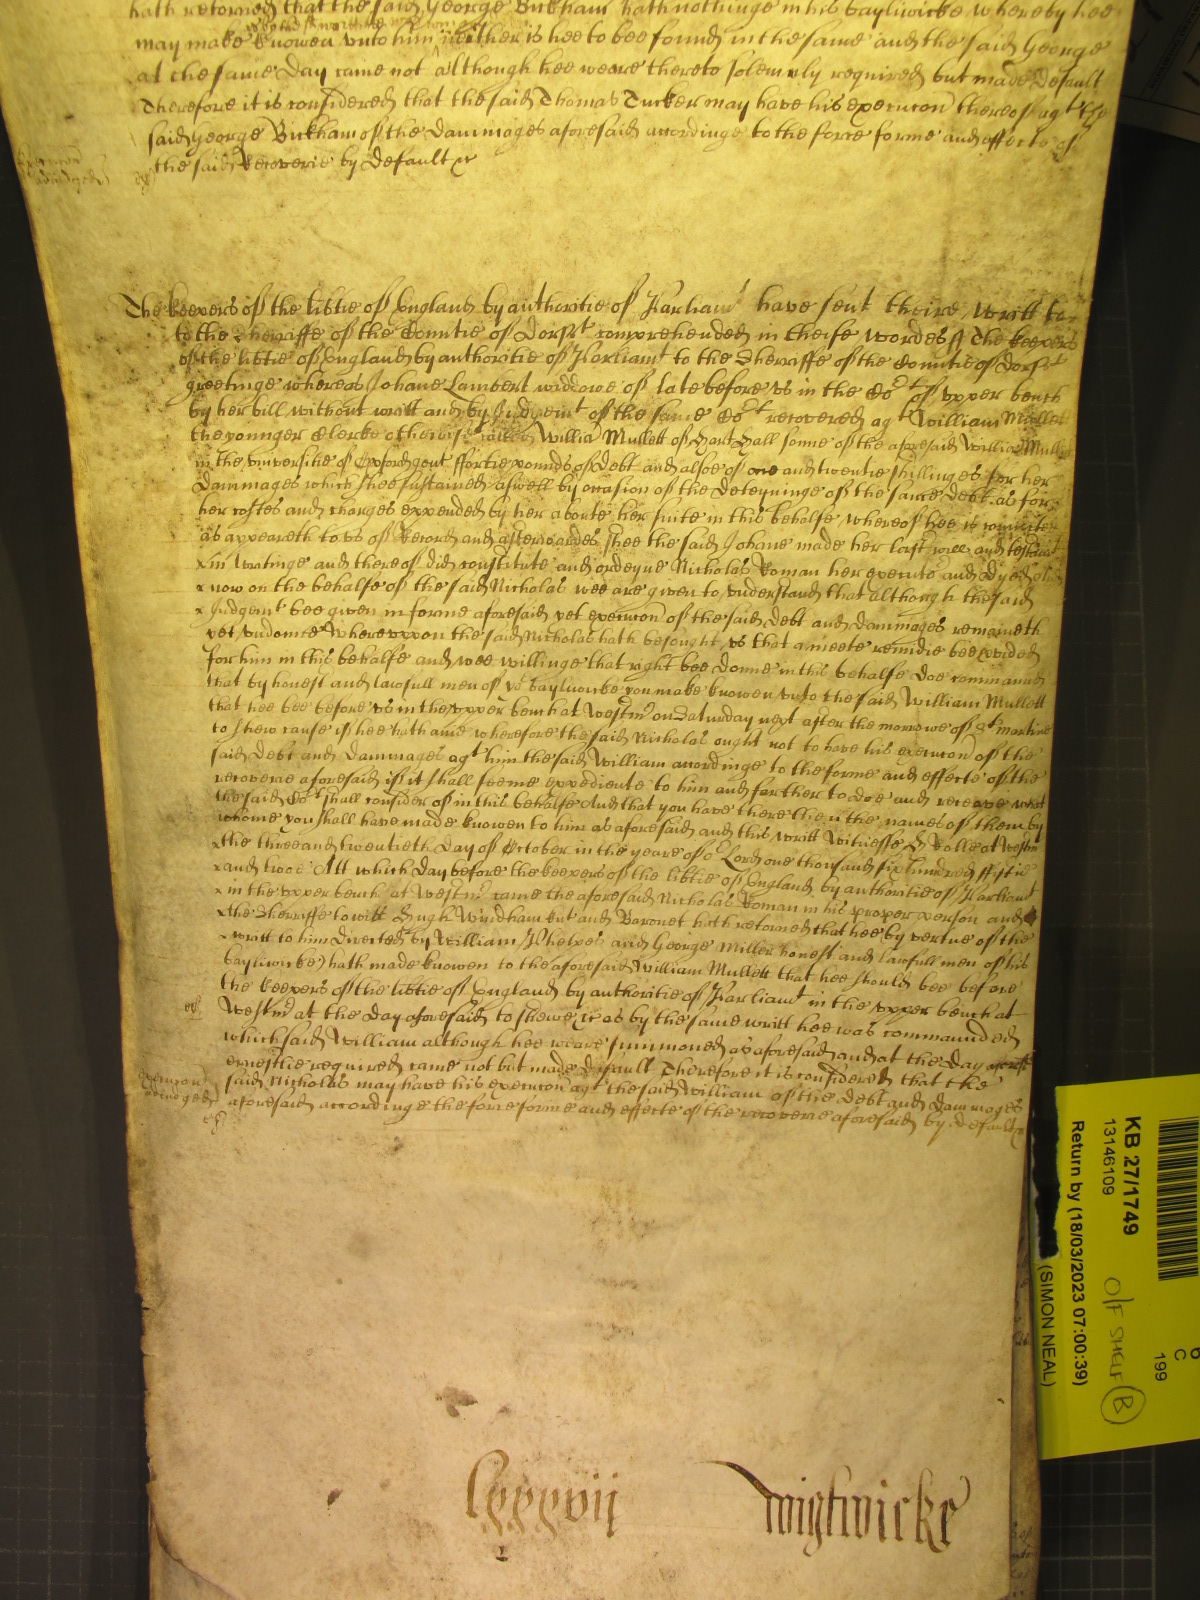 hath retorned that the said George Bickham hath nothinge in his bayliwicke whereby hee
may make knowen unto him neither is hee to bee found in the same and the said George
at the same day came not although hee weare thereto solemnly required but made default
Therefore it is considered that the said Thomas Tucker may have his execucon thereof agt the
said George Bickham of the dammages aforesaid accordinge to the force forme and effecte of
the said Recoverie by default &c
The keepers of the libtie of England by authoritie of Parliamt have sent theire writt
to the Sherriffe of the Countie of Dorst comprehended in theise wordes ss The keepers
of the libtie of England by authoritie of Parliamt to the Sherriffe of the Countie of Dorst
greetinge whereas Johane Lambert widdowe of late before us in the Cort of upper bench
by her bill without writt and by Judgemt of the same Cort recovered agt William Mullett
the younger Clerke otherwise called Willia Mullett of Hart Hall sonne of the aforesaid Willia Mullett
in the universitie of Oxford gent ffortie pounds of debt and alsoe of one and twentie shillinges for her
dammages which shee sustained aswell by occasion of the deteyninge of the same debt as for
her costes and charges expended by her aboute her suite in this behalfe whereof hee is convicted
as appeareth to us of Record and afterwardes shee the said Johane made her last will and testamt
in writinge and thereof did constitute and ordeyne Nicholas Roman her executor and dyed
now on the behalfe of the said Nicholas wee are given to understand that although the said
Judgemt bee given in forme aforesaid yet execucon of the said debt and dammages remaineth
yet undonne Whereuppon the said Nicholas hath besought us that a meete remidie bee pvided
for him in this behalfe and wee willinge that right bee donne in this behalfe doe command
that by honest and lawfull men of yor bayliwicke you make knowen unto the said William Mullett
that hee bee before us in the upper bench at Westmr on Saturday next after the morrowe of St martine
to shew cause if hee hath anie wherefore the said Nicholas ought not to have his execucon of the
said debt and dammages agt him the said William accordinge to the forme and effecte of the
recoverie aforesaid if it shall seeme expediente to him and farther to doe and receave what
the said Cort shall consider of in this behalfe And that you have there then the names of them by
whome you shall have made knowen to him as aforesaid and this writt Witnesse H Rolle at Westmr
the three and twentieth day of October in the yeare of or Lord one thousand six hundred ffiftie
and twoe Att which day before the keepers of the libtie of England by authoritie of Parliamt
in the upper bench at Westmr came the aforesaid Nicholas Roman in his proper person and
the Sherriffe to witt Hugh Windham knt and Baronet hath retorned that hee by vertue of the
writt to him directed by William Phelpes and George Miller honest and lawfull men of his
bayliwicke hath made knowen to the aforesaid William Mullett that hee should bee before
the keepers of the libtie of England by authoritie of Parliamt in the upper bench at
Westmr at the day aforesaid to shewe &c as by the same writt hee was commaunded
which said William although hee weare summoned as aforesaid and at the day
ernestlie required came not but made default Therefore it is considered that the
said Nicholas may have his execucon agt the said William of the debt and dammages
aforesaid accordinge the force forme and effecte of the recoverie aforesaid by default &c
execucon
adiudged
lxxxvij
wightwicke
KB 27/1749
13146109
Return by (18/03/2023 07:00:39)
(SIMON NEAL)
O/F SHELF B
6
C
199